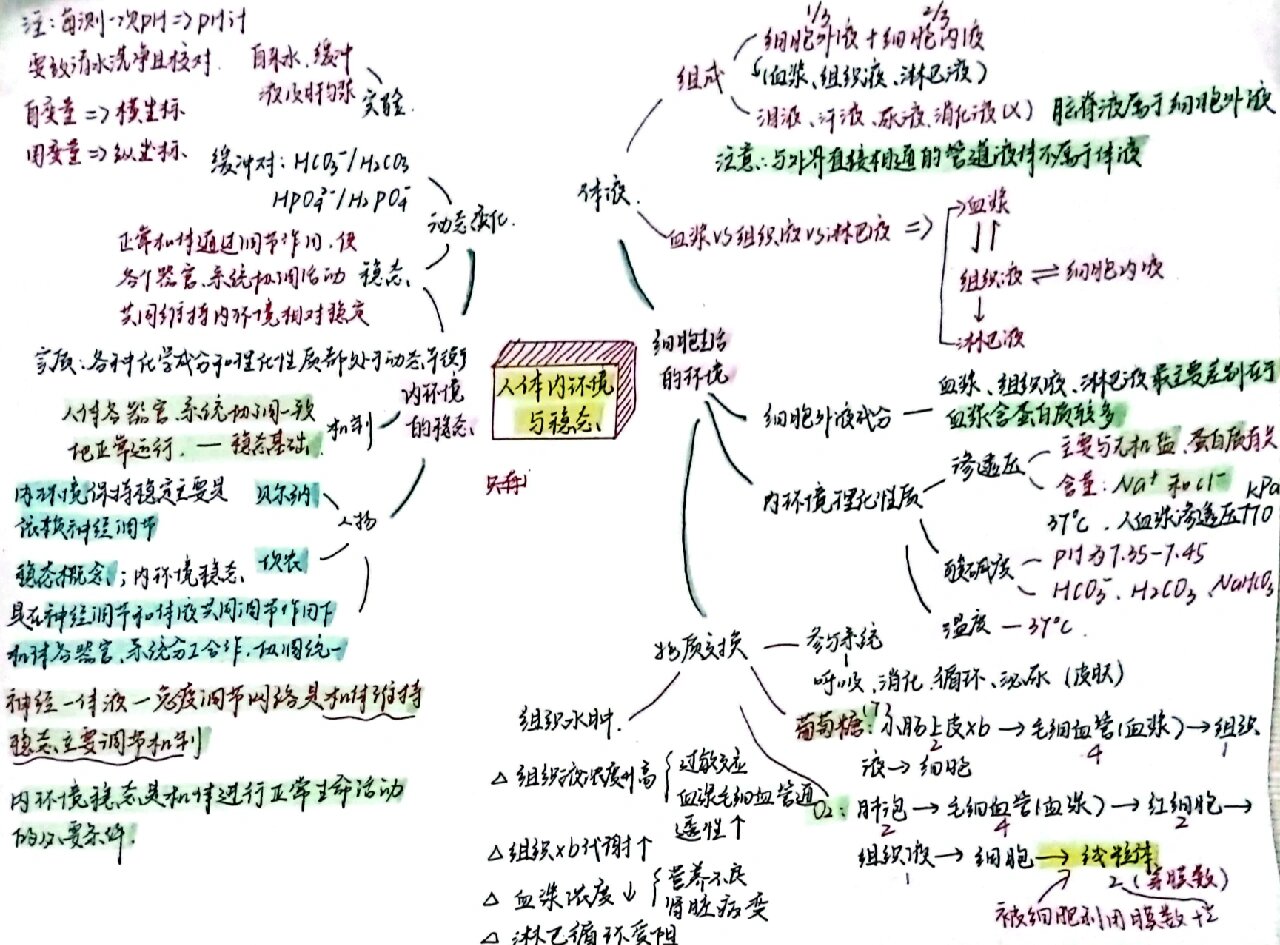 注：每测一次pH=>pH计
要致清水洗净且校对
自变量=>横坐标
因变量=>纵坐标
自来水、缓冲
液及肝匀浆
实验
缓冲对：HCO₃⁻/H₂CO₃
HPO₄²⁻/H₂PO₄⁻
动态变化
正常机体通过调节作用，使
各个器官、系统协调活动
共同维持内环境相对稳定
稳态
实质：各种化学成分和理化性质都处于动态平衡
内环境
的稳态
人体各器官、系统协调一致
地正常运行，一稳态基础
机制
内环境保持稳定主要是
依赖神经调节
贝尔纳
人物
稳态概念：内环境稳态
是在神经调节和体液共同调节作用下
机体各器官、系统分工合作、协调统一
坎农
神经一体液一免疫调节网络是机体维持
稳态主要调节机制
内环境稳态是机体进行正常生命活动
的必要条件
人体内环境
与稳态
细胞生活
的环境
体液
组成
1/3 2/3
细胞外液+细胞内液
(血浆、组织液、淋巴液)
泪液、汗液、尿液、消化液(×) 脑脊液属于细胞外液
注意：与外界直接相通的管道液体不属于体液
血浆VS组织液VS淋巴液=>
血浆
组织液⇌细胞内液
淋巴液
细胞外液成分
血浆、组织液、淋巴液最主要差别在于
血浆含蛋白质较多
内环境理化性质
渗透压
主要与无机盐、蛋白质有关
含量：Na⁺和Cl⁻
37℃，人血浆渗透压770
kPa
酸碱度
pH为7.35-7.45
HCO₃⁻、H₂CO₃、NaHCO₃
温度—37℃
物质交换
参与系统
呼吸、消化、循环、泌尿(皮肤)
葡萄糖：小肠上皮xb→毛细血管(血浆)→组织
2 4 1
液→细胞
O₂：肺泡→毛细血管(血浆)→红细胞→
2 4 2
组织液→细胞→线粒体
2(穿膜数)
被细胞利用膜数
组织水肿
△组织液浓度升高
过敏反应
血浆毛细血管通
透性↑
△组织xb代谢↑
△血浆浓度↓
营养不良
肾脏病变
△淋巴循环受阻